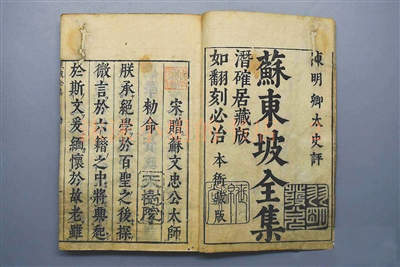 陳明卿太史評
蘇東坡全集
潛確居藏版
如翻刻必治
本衙藏版
宋贈蘇文忠公太師
勅命
朕承絕學於百聖之後探
微言於六籍之中將興起
於斯文爰緬懷於故老雖